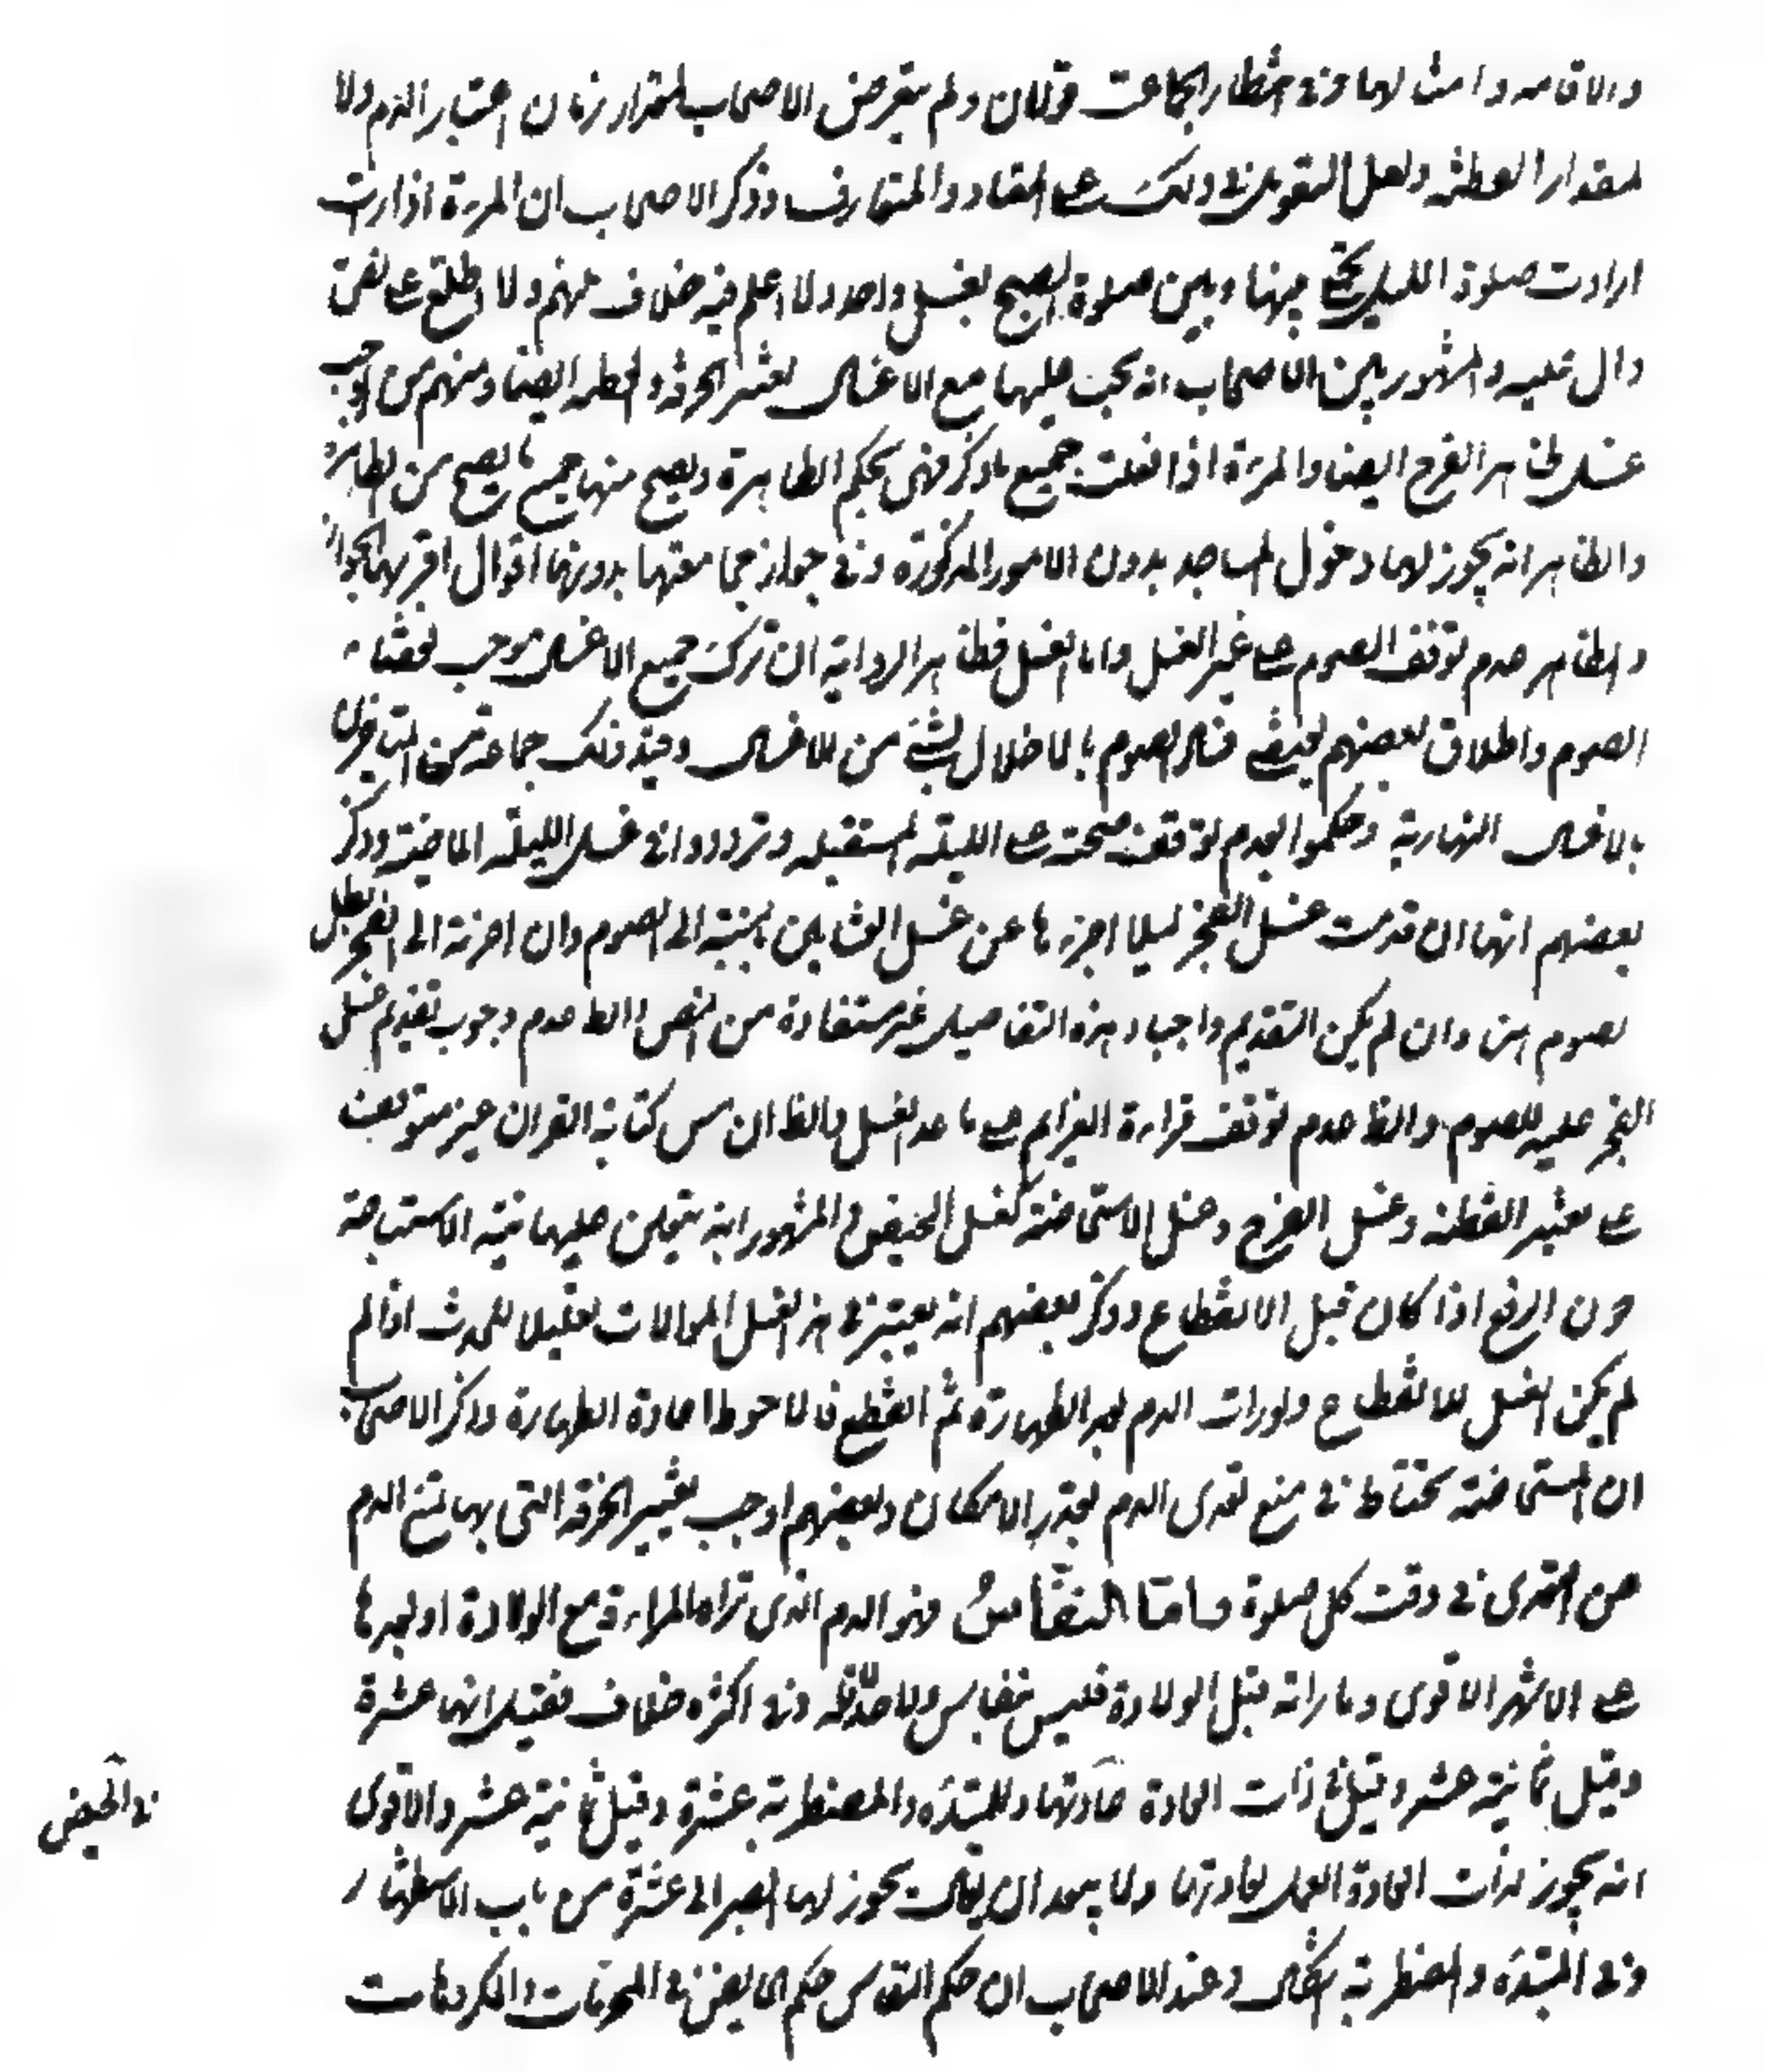 والاقامه وامثالهما وفي انتظار الجماعت قولان ولم يتعرض الاصحاب لمقدار زمان اعتبار الدم ولا
لمقدار القطنه ولعل التعويل في ذلك على المعتاد والمتعارف وذكر الاصحاب ان المرءة اذا رات
ارادت صلوة الليل تجمع بينها وبين صلوة الصبح بغسل واحد ولا اعلم فيه خلاف منهم ولا اطلع على نص
دال عليه والمشهور بين الاصحاب انه يجب عليها مع الاغسال تغيير الخرقة والقطنه ايضا ومنهم من اوجب
غسل ظاهر الفرج ايضا والمرءة اذا فعلت جميع ما ذكر فهي بحكم الطاهرة ويصح منها جميع ما يصح من الطاهرة
والظاهر انه يجوز لها دخول المساجد بدون الامور المذكورة وفي جواز مجامعتها بدونها اقوال اقربها الجواز
والظاهر عدم توقف الصوم على غير الغسل واما الغسل فظاهر الرواية ان ترك جميع الاغسال موجب لقضاء
الصوم واطلاق بعضهم يقتضي فساد الصوم بالاخلال بشيء من الاغسال وقيد ذلك جماعة من المتاخرين
بالاغسال النهارية وحكموا بعدم توقف صحته على الليلة المستقبله وترددوا في غسل الليلة الماضية وذكر
بعضهم انها ان قدمت غسل الفجر ليلا اجزءها عن غسل العشايين بالنسبة الى الصوم وان اخرته الى الفجر بطل
لصوم هنا وان لم يكن التقديم واجبا وهذه التفاصيل غير مستفادة من النص والظ عدم وجوب تقديم غسل
الفجر عليه للصوم والظ عدم توقف قراءة العزايم على ما عدا الغسل والظ ان مس كتابة القران غير متوقف
على تغيير القطنه وغسل الفرج وغسل الاستحاضة كغسل الحيض والمشهور انه يتعين عليها نية الاستباحة
دون الرفع اذا كان قبل الانقطاع وذكر بعضهم انه يعتبر في هذا الغسل الموالات تقليلا للحدث اذا لم
لم يكن الغسل للانقطاع ولو رات الدم بعد الطهارة ثم انقطع فالاحوط اعادة الطهارة وذكر الاصحاب
ان المستحاضة تحتاط في منع تعدى الدم بقدر الامكان وبعضهم اوجب تغيير الخرقة التى بها تمنع الدم
من التعدى في وقت كل صلوة واما النفاس فهو الدم الذى تراه المراءة مع الولادة او بعدها
على الاشهر الاقوى وما راته قبل الولادة فليس بنفاس ولا حد لاقله وفي اكثره خلاف فقيل انها عشرة
وقيل ثمانية عشر وقيل في ذات العادة عادتها وللمبتدءه والمضطربة عشرة وقيل ثمانية عشر والاقوى
انه يجوز لذات العادة العمل بعادتها ولا يبعد ان يقال يجوز لها الصبر الى عشرة من باب الاستظهار
وفي المبتدءه والمضطربة اشكال وعند الاصحاب ان حكم النفاس حكم الحايض في المحرمات والمكروهات
والحيض